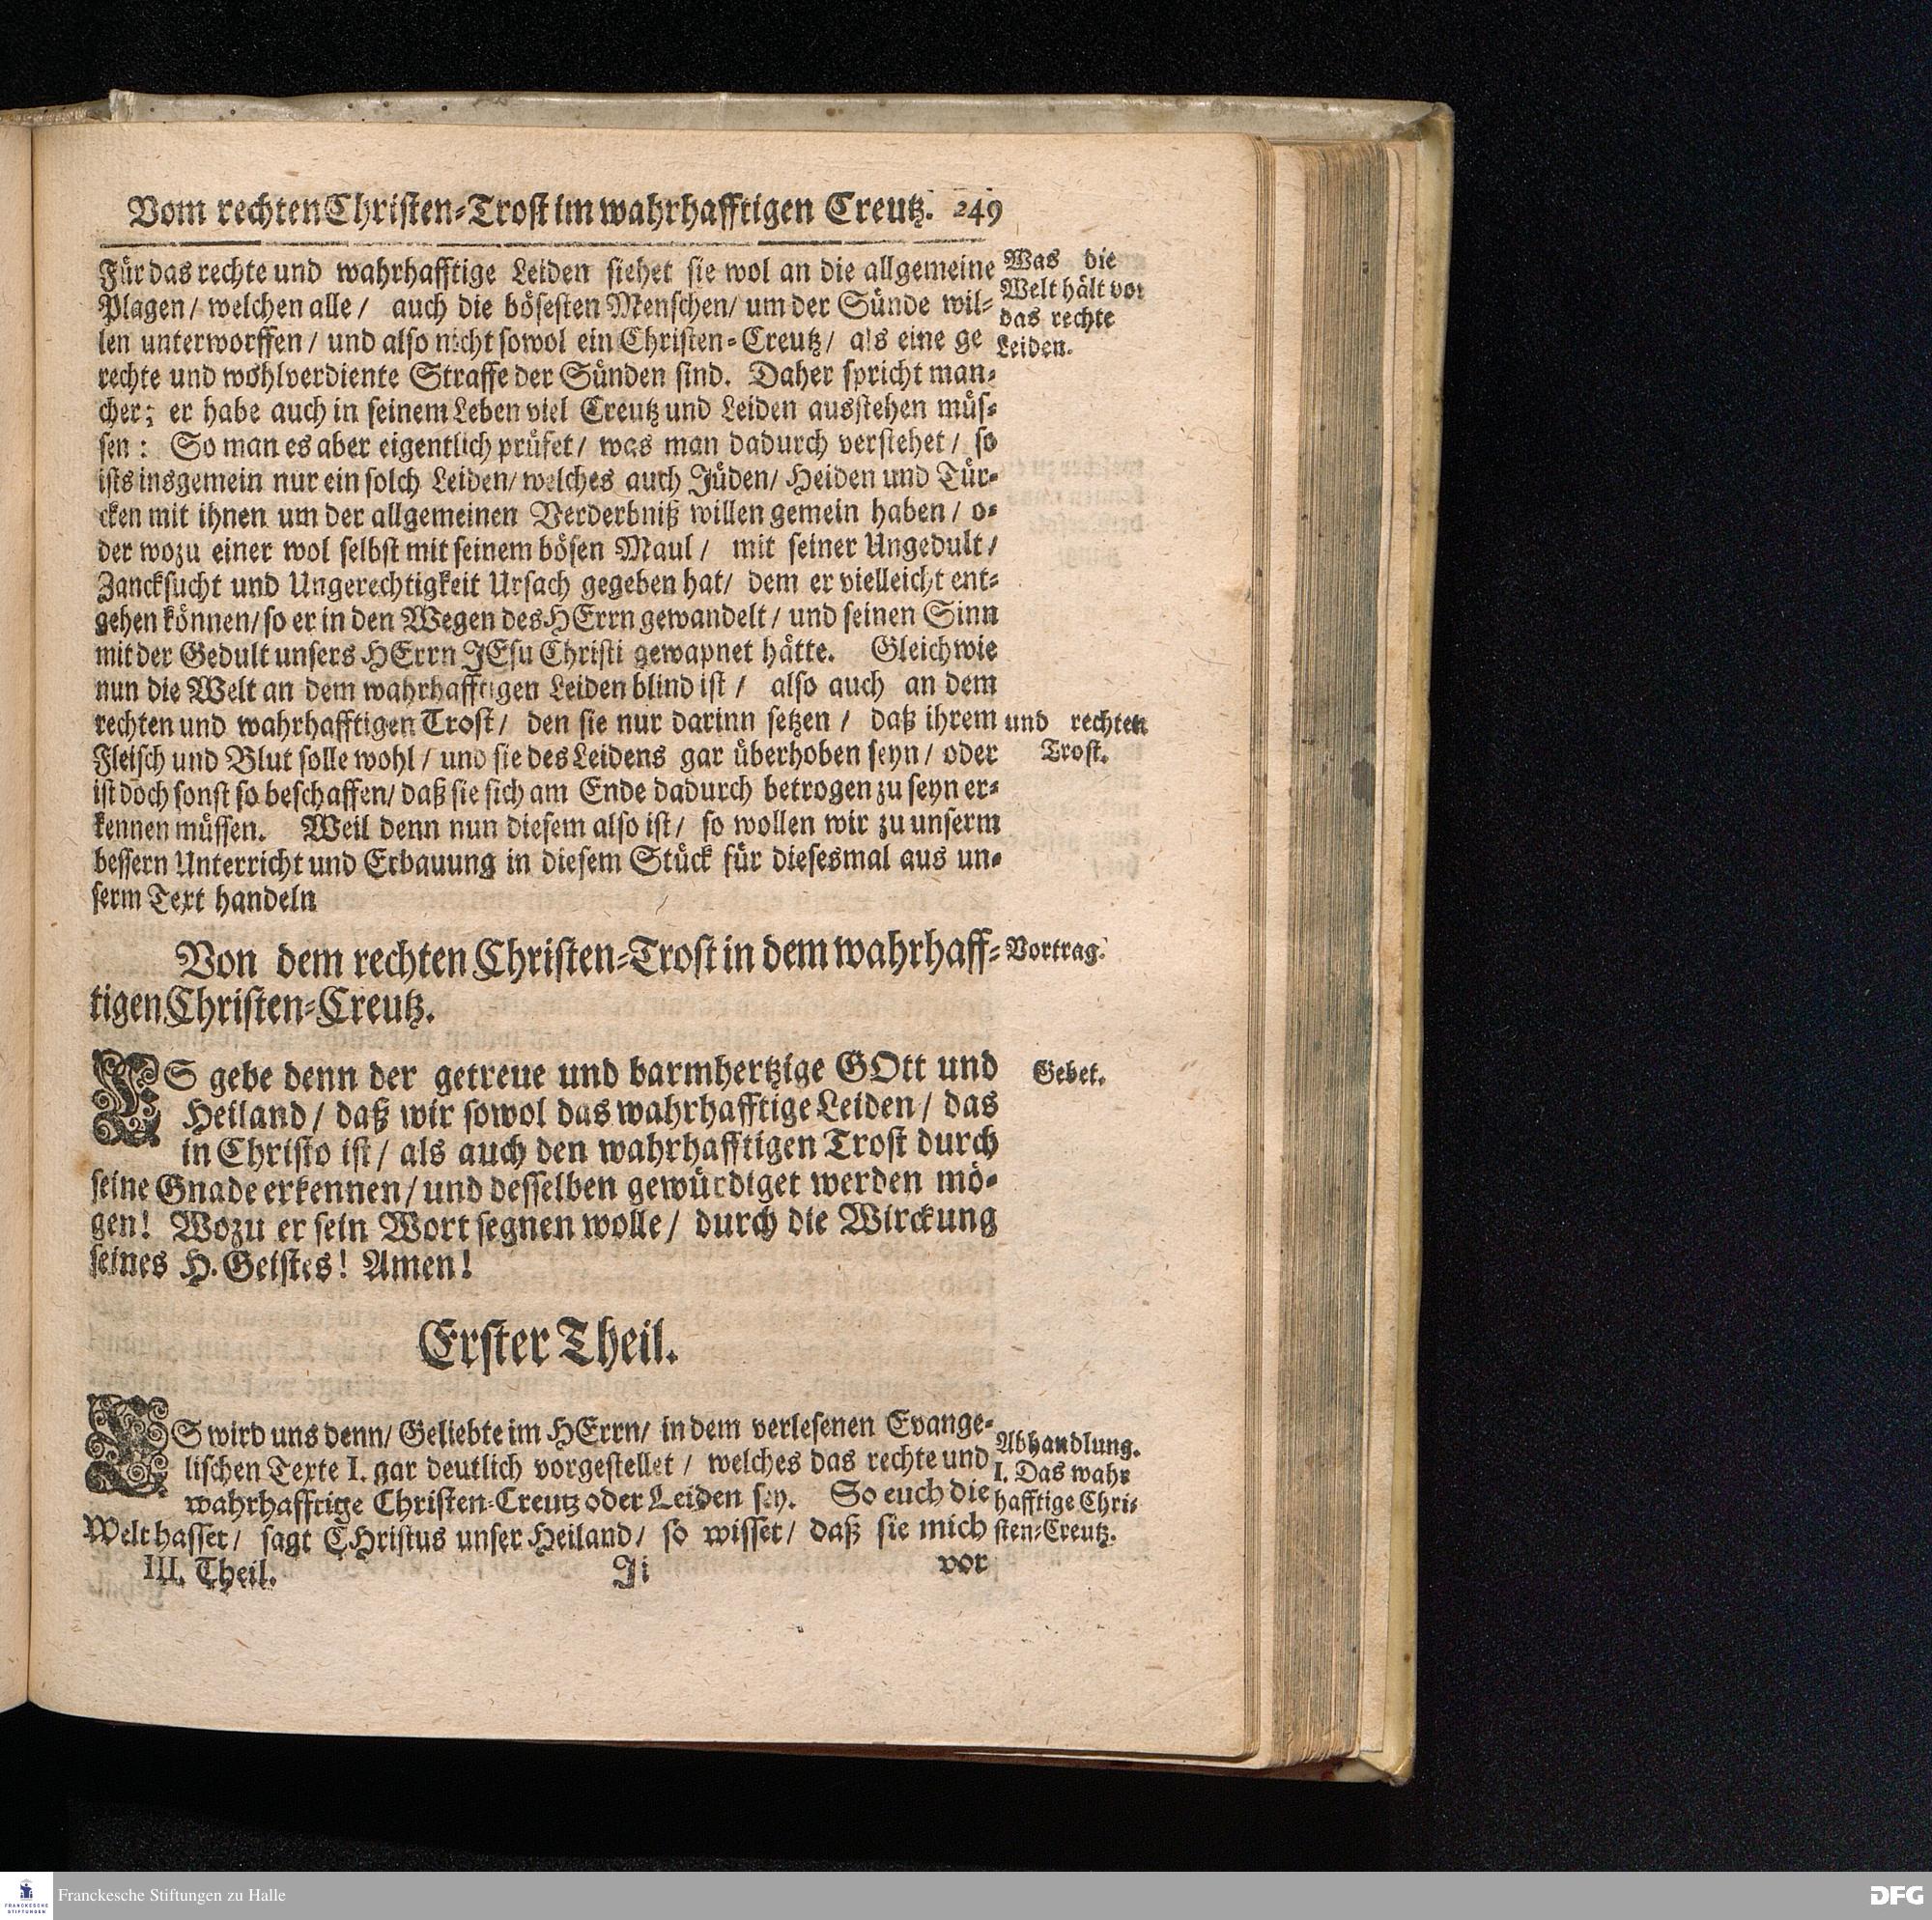 Vom rechten Christen-Trost im wahrhafftigen Creutz. 249
Für das rechte und wahrhafftige Leiden siehet sie wol an die allgemeine
Plagen/ welchen alle/ auch die bösesten Menschen/ um der Sünde wil-
len unterworffen/ und also nicht sowol ein Christen-Creutz/ als eine ge
rechte und wohlverdiente Straffe der Sünden sind. Daher spricht man-
cher; er habe auch in seinem Leben viel Creutz und Leiden ausstehen müs-
sen: So man es aber eigentlich prüfet/ was man dadurch verstehet/ so
ists insgemein nur ein solch Leiden/ welches auch Jüden/ Heiden und Tür-
cken mit ihnen um der allgemeinen Verderbniß willen gemein haben/ o-
der wozu einer wol selbst mit seinem bösen Maul/ mit seiner Ungedult/
Zancksucht und Ungerechtigkeit Ursach gegeben hat/ dem er vielleicht ent-
gehen können/ so er in den Wegen des HErrn gewandelt/ und seinen Sinn
mit der Gedult unsers HErrn JEsu Christi gewapnet hätte. Gleichwie
nun die Welt an dem wahrhafftigen Leiden blind ist/ also auch an dem
rechten und wahrhafftigen Trost/ den sie nur darinn setzen/ daß ihrem
Fleisch und Blut solle wohl/ und sie des Leidens gar überhoben seyn/ oder
ist doch sonst so beschaffen/ daß sie sich am Ende dadurch betrogen zu seyn er-
kennen müssen. Weil denn nun diesem also ist/ so wollen wir zu unserm
bessern Unterricht und Erbauung in diesem Stück für diesesmal aus un-
serm Text handeln
Was die
Welt hält vor
das rechte
Leiden.
und rechten
Trost.
Von dem rechten Christen-Trost in dem wahrhaff-
tigen Christen-Creutz.
Vortrag.
ES gebe denn der getreue und barmhertzige GOtt und
Heiland/ daß wir sowol das wahrhafftige Leiden/ das
in Christo ist/ als auch den wahrhafftigen Trost durch
seine Gnade erkennen/ und desselben gewürdiget werden mö-
gen! Wozu er sein Wort segnen wolle/ durch die Wirckung
seines H. Geistes! Amen!
Gebet.
Erster Theil.
ES wird uns denn/ Geliebte im HErrn/ in dem verlesenen Evange-
lischen Texte I. gar deutlich vorgestellet/ welches das rechte und
wahrhafftige Christen-Creutz oder Leiden sey. So euch die
Welt hasset/ sagt CHristus unser Heiland/ so wisset/ daß sie mich
Abhandlung.
I. Das wahr
hafftige Chri-
sten-Creutz.
III. Theil. Ii vor
Franckesche Stiftungen zu Halle
FRANCKESCHE
STIFTUNGEN
DFG